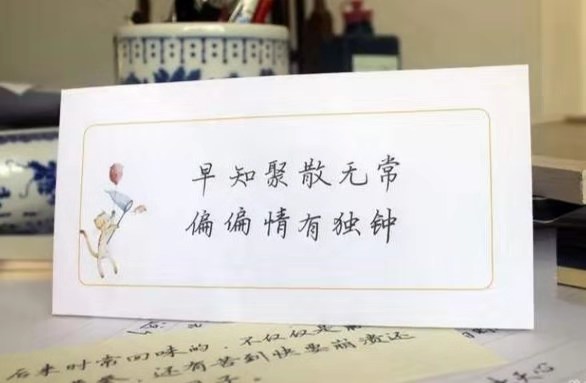 早知聚散无常
偏偏情有独钟
后来时常回味的，不仅仅是
还有苦到快要崩溃还